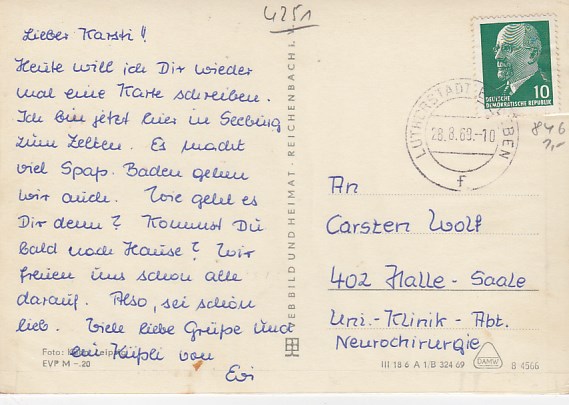 4251
Lieber Karsti!!
Heute will ich Dir wieder
mal eine Karte schreiben.
Ich bin jetzt hier in Seeburg
zum Zelten. Es macht
viel Spaß. Baden gehen
wir auch. Wie geht es
Dir denn? Kommst Du
bald nach Hause? Wir
freuen uns schon alle
darauf. Also, sei schön
lieb. Viele liebe Grüße und
ein Küßli von
Evi
Foto: Leipzig
EVP M -.20
BILD UND HEIMAT · REICHENBACH i.
DEUTSCHE
DEMOKRATISCHE REPUBLIK
10
LUTHERSTADT EISLEBEN
28.8.69.-10
f
846
1,-
An
Carsten Wolf
402 Halle-Saale
Uni.-Klinik-Abt.
Neurochirurgie
III 18 6 A 1/B 324 69
DAMW
B 4566